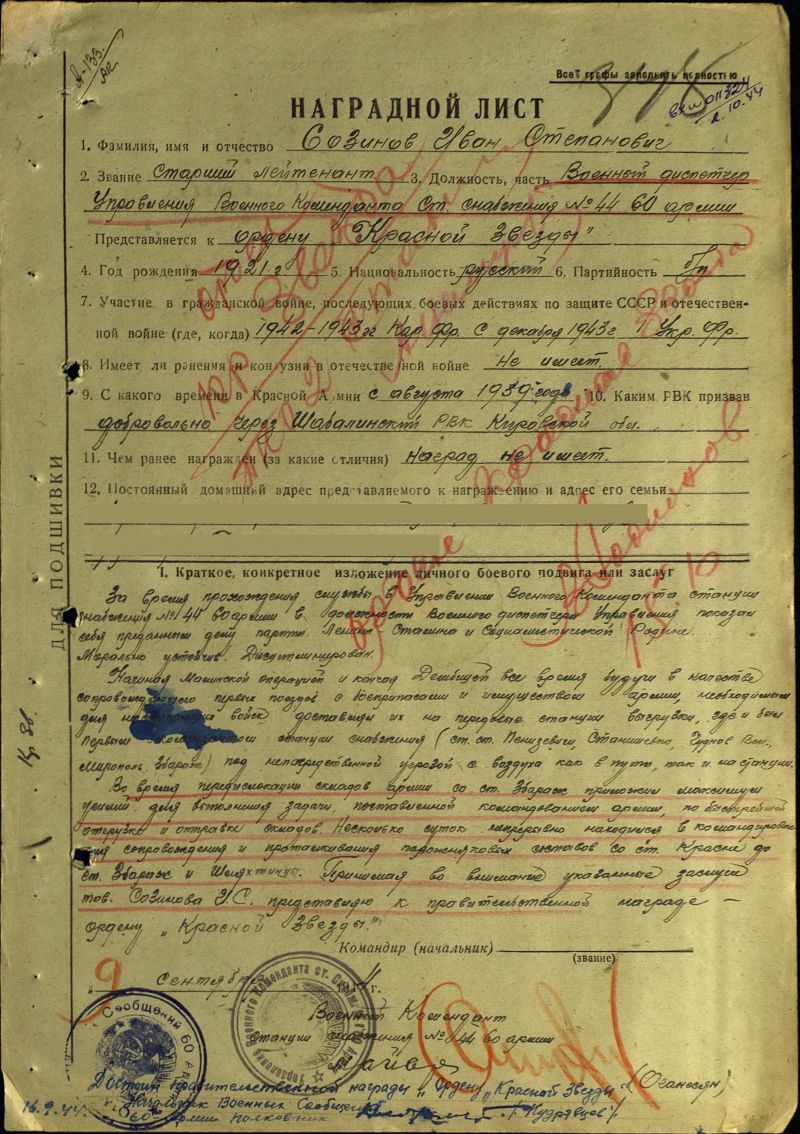 А-133
Все графы заполнять полностью
2.10.44
НАГРАДНОЙ ЛИСТ
1. Фамилия, имя и отчество Созинов Иван Степанович
2. Звание Старший Лейтенант 3. Должность, часть Военный диспетчер
Управления Военного Коменданта Ст. снабжения № 44 60 армии
Представляется к ордену "Красной Звезды"
4. Год рождения 1921 г 5. Национальность русский 6. Партийность б/п
7. Участие в гражданской войне, последующих боевых действиях по защите СССР и отечествен-
ной войне (где, когда) 1942-1943 гг Кар. Фр. с декабря 1943 г 1 Укр. Фр.
8. Имеет ли ранения и контузии в отечественной войне не имеет.
9. С какого времени в Красной Армии с августа 1939 года 10. Каким РВК призван
добровольно через Шабалинский РВК Кировской обл.
11. Чем ранее награжден (за какие отличия) наград не имеет.
12. Постоянный домашний адрес представляемого к награждению и адрес его семьи
ДЛЯ ПОДШИВКИ
1. Краткое, конкретное изложение личного боевого подвига или заслуг
За время прохождения службы в Управлении Военного Коменданта станции
снабжения № 44 60 армии в должности Военного диспетчера Управления показал
себя преданным делу партии Ленина-Сталина и Социалистической Родине.
Морально устойчив. Дисциплинирован.
Начиная операцией и кончая Дембицей все время будучи в качестве
сопровождающего первых поездов с боеприпасами и имуществом армии, необходимым
для войск доставлял их на передовые станции выгрузки, где и был
первым станции снабжения (ст. ст. Пенизевичи, Станишевка, Чуднов Вол.,
Мирополь, Збараж) под непосредственной угрозой с воздуха как в пути, так и на станции.
Во время передислокации складов армии со ст. Збараж приложил максимум
усилий для выполнения задачи поставленной командованием армии, по быстрейшей
отгрузке и отправки складов. Несколько суток непрерывно находился в командировке
для сопровождения и проталкивания порожняковых составов со ст. Красне до
ст. Збараж и Шляхтинцы. Принимая во внимание указанные заслуги
тов. Созинова И.С. представляю к правительственной награде -
ордену "Красной Звезды".
Командир (начальник)
(звание)
9 сентября 1944 г.
Военный Комендант
станции снабжения № 44 60 армии
(Оганесян)
Достоин правительственной награды "Ордену "Красной Звезды"
Начальник Военных Сообщений
60 армии полковник (Кудрявцев)
16.9.44